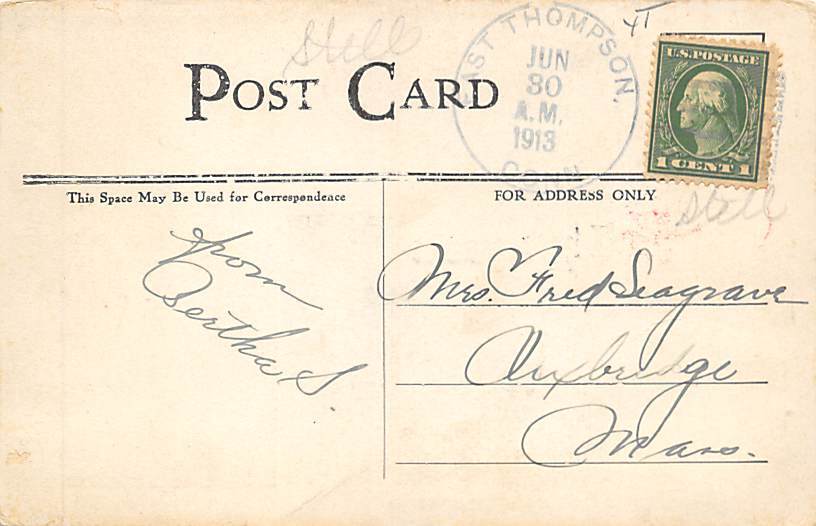 Stell
POST CARD
EAST THOMPSON,
JUN
30
A.M.
1913
CONN.
U.S. POSTAGE
1 CENT 1
This Space May Be Used for Correspondence
FOR ADDRESS ONLY
Stell
from
Bertha S.
Mrs. Fred Seagrave
Uxbridge
Mass.